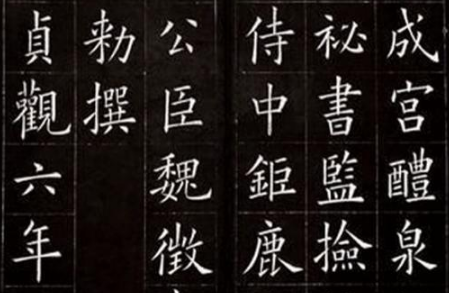 成宮醴泉
祕書監撿
侍中鉅鹿
公臣魏徵
勑撰
貞觀六年